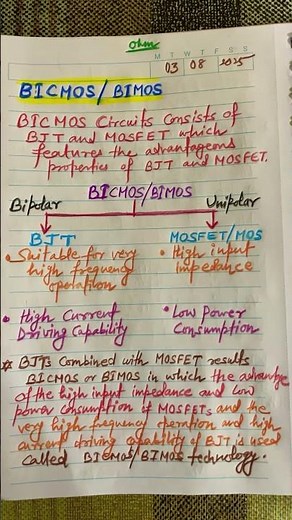 ohm
M T W T F S S
03 08 2025
BICMOS/BIMOS
BICMOS Circuits Consists of
BJT and MOSFET which
features the advantageous
properties of BJT and MOSFET.
BICMOS/BIMOS
Bipolar
Unipolar
BJT
• Suitable for very
high frequency
operation
• High Current
Driving Capability
MOSFET/MOS
• High input
impedance
• Low Power
Consumption
☆ BJTs Combined with MOSFET results
BICMOS or BIMOS in which the advantage
of the high input impedance and low
power consumption of MOSFETs and the
very high frequency operation and high
current driving capability of BJT is used
called BICMOS/BIMOS technology.